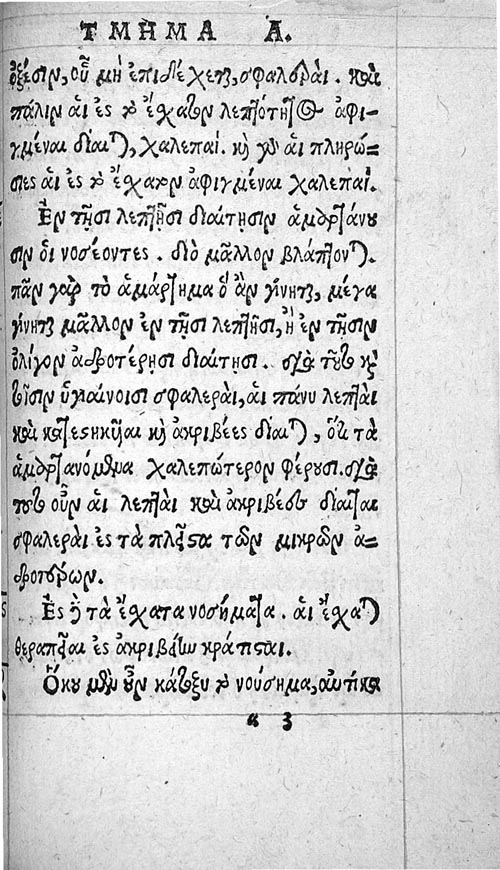 ΤΜΗΜΑ Α.
ὀξέσιν, οὗ μὴ ἐπιδέχεται, σφαλεραί. καὶ
πάλιν αἱ ἐς τὸ ἔχατον λεπτότητος ἀφι-
γμέναι δίαιται, χαλεπαί. κὴ γὰρ αἱ πληρώ=
σιες αἱ ἐς τὸ ἔχατον ἀφιγμέναι χαλεπαί.
Ἐν τῇσι λεπτῇσι διαίτῃσιν ἁμαρτάνου
σιν οἱ νοσέοντες. διὸ μᾶλλον βλάπτονται.
πᾶν γὰρ τὸ ἁμάρτημα ὃ ἂν γίνηται, μέγα
γίνηται μᾶλλον ἐν τῇσι λεπτῇσι, ἢ ἐν τῇσιν
ὀλίγον ἁδροτέρῃσι διαίτῃσι. διὰ τοῦτο κὴ
τοῖσιν ὑγιαίνοισι σφαλεραὶ, αἱ πάνυ λεπταὶ
καὶ καθεστηκυῖαι κὴ ἀκριβέες δίαιται, ὅτι τὰ
ἁμαρτανόμενα χαλεπώτερον φέρουσι. διὰ
τοῦτο οὖν αἱ λεπταὶ καὶ ἀκριβέες δίαιται
σφαλεραὶ ἐς τὰ πλεῖστα τῶν μικρῶν ἁ=
δροτέρων.
Ἐς δὲ τὰ ἔχατα νοσήματα. αἱ ἔχαται
θεραπεῖαι ἐς ἀκριβείην κράτισται.
Ὅκου μὲν οὖν κάτοξυ τὸ νούσημα, αὐτίκα
α 3